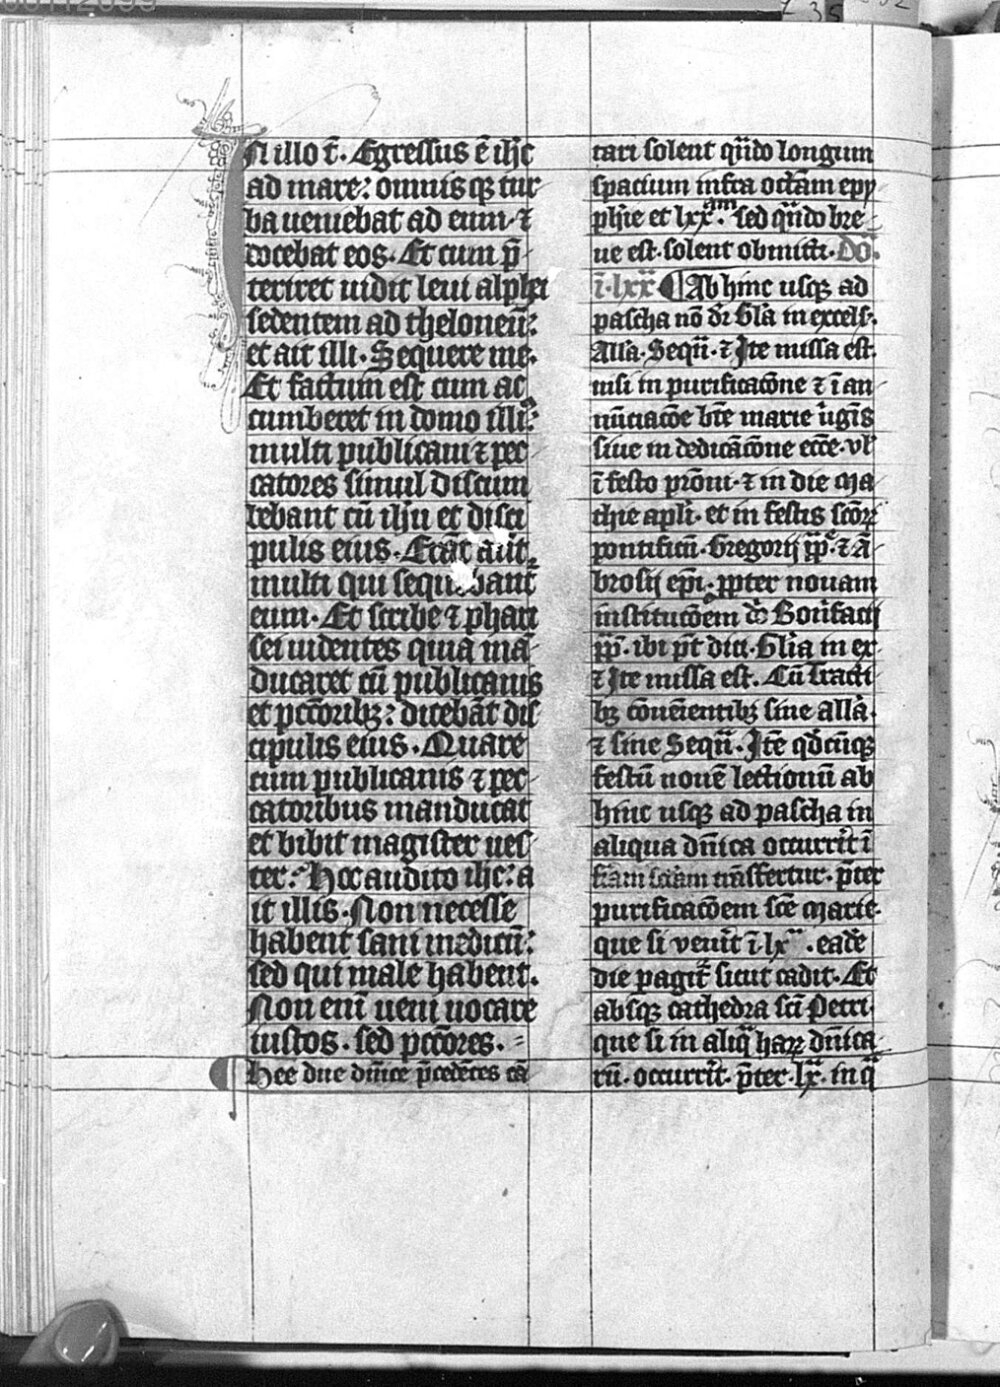 IN illo t̄. Egressus ē ih̄c
ad mare: omnisq; tur
ba ueniebat ad eum. ⁊
docebat eos. Et cum p̄
teriret uidit leui alphei
sedentem ad theloneū:
et ait illi. Sequere me.
Et factum est cum ac
cumberet in domo illi᷒:
multi publicani ⁊ pec
catores simul discum
bebant cū ih̄u et disci
pulis eius. Erāt aūt
multi qui sequebant᷑
eum. Et scribe ⁊ phari
sei uidentes quia mā
ducaret cū publicanis
et pctōribꝫ: dicebāt dis
cipulis eius. Quare
cum publicanis ⁊ pec
catoribus manducat
et bibit magister ues
ter: Hoc audito ih̄c: a
it illis. Non necesse
habent sani medicū:
sed qui male habent.
Non enī ueni uocare
iustos. sed pctōres.
Hee due dn̄ice p̄cedētes cā
tari solent qn̄do longum
spacium infra octām epy
phīe et lxx.am sed qn̄do bre
ue est. solent obmitti. Dō.
ī. lxx ¶ Ab hinc usqꝫ ad
pascha nō dr̄ Gl̄a in excels.
Alla. Seqū. ⁊ Ite missa est.
nisi in purificacōne ⁊ ī an
nūciacōe bt̄e marie uīgīs
siue in dedicācōne ecc̄e. vl̄
ī festo prōni. ⁊ in die ma
thie apl̄i. et in festis scōꝝ
pontificū. Gregorij pp̄. ⁊ ā
brosij ep̄i. ꝓpter nouam
institucōem dō Bonifacij
pp̄. ibi pt̄ dici. Gl̄ia in ex
⁊ Ite missa est. Cū tracti
bꝫ cōueīentibꝫ sine allā.
⁊ sine Seqū. Itē qd̄cūqꝫ
festū nouē lectionū ab
hinc usqꝫ ad pascha in
aliqua dn̄ica occurrīt ī
fr̄iam scd̄am trāsfertur. p̄ter
purificacōem sc̄e marie.
que si venīt ī lxx. eadē
die pagit᷑ sicut cadit. Et
absqꝫ cathedra sc̄i Petri.
que si in aliq̄ haꝝ dn̄ica
rū. occurrīt. p̄ter. lxx. in q̄